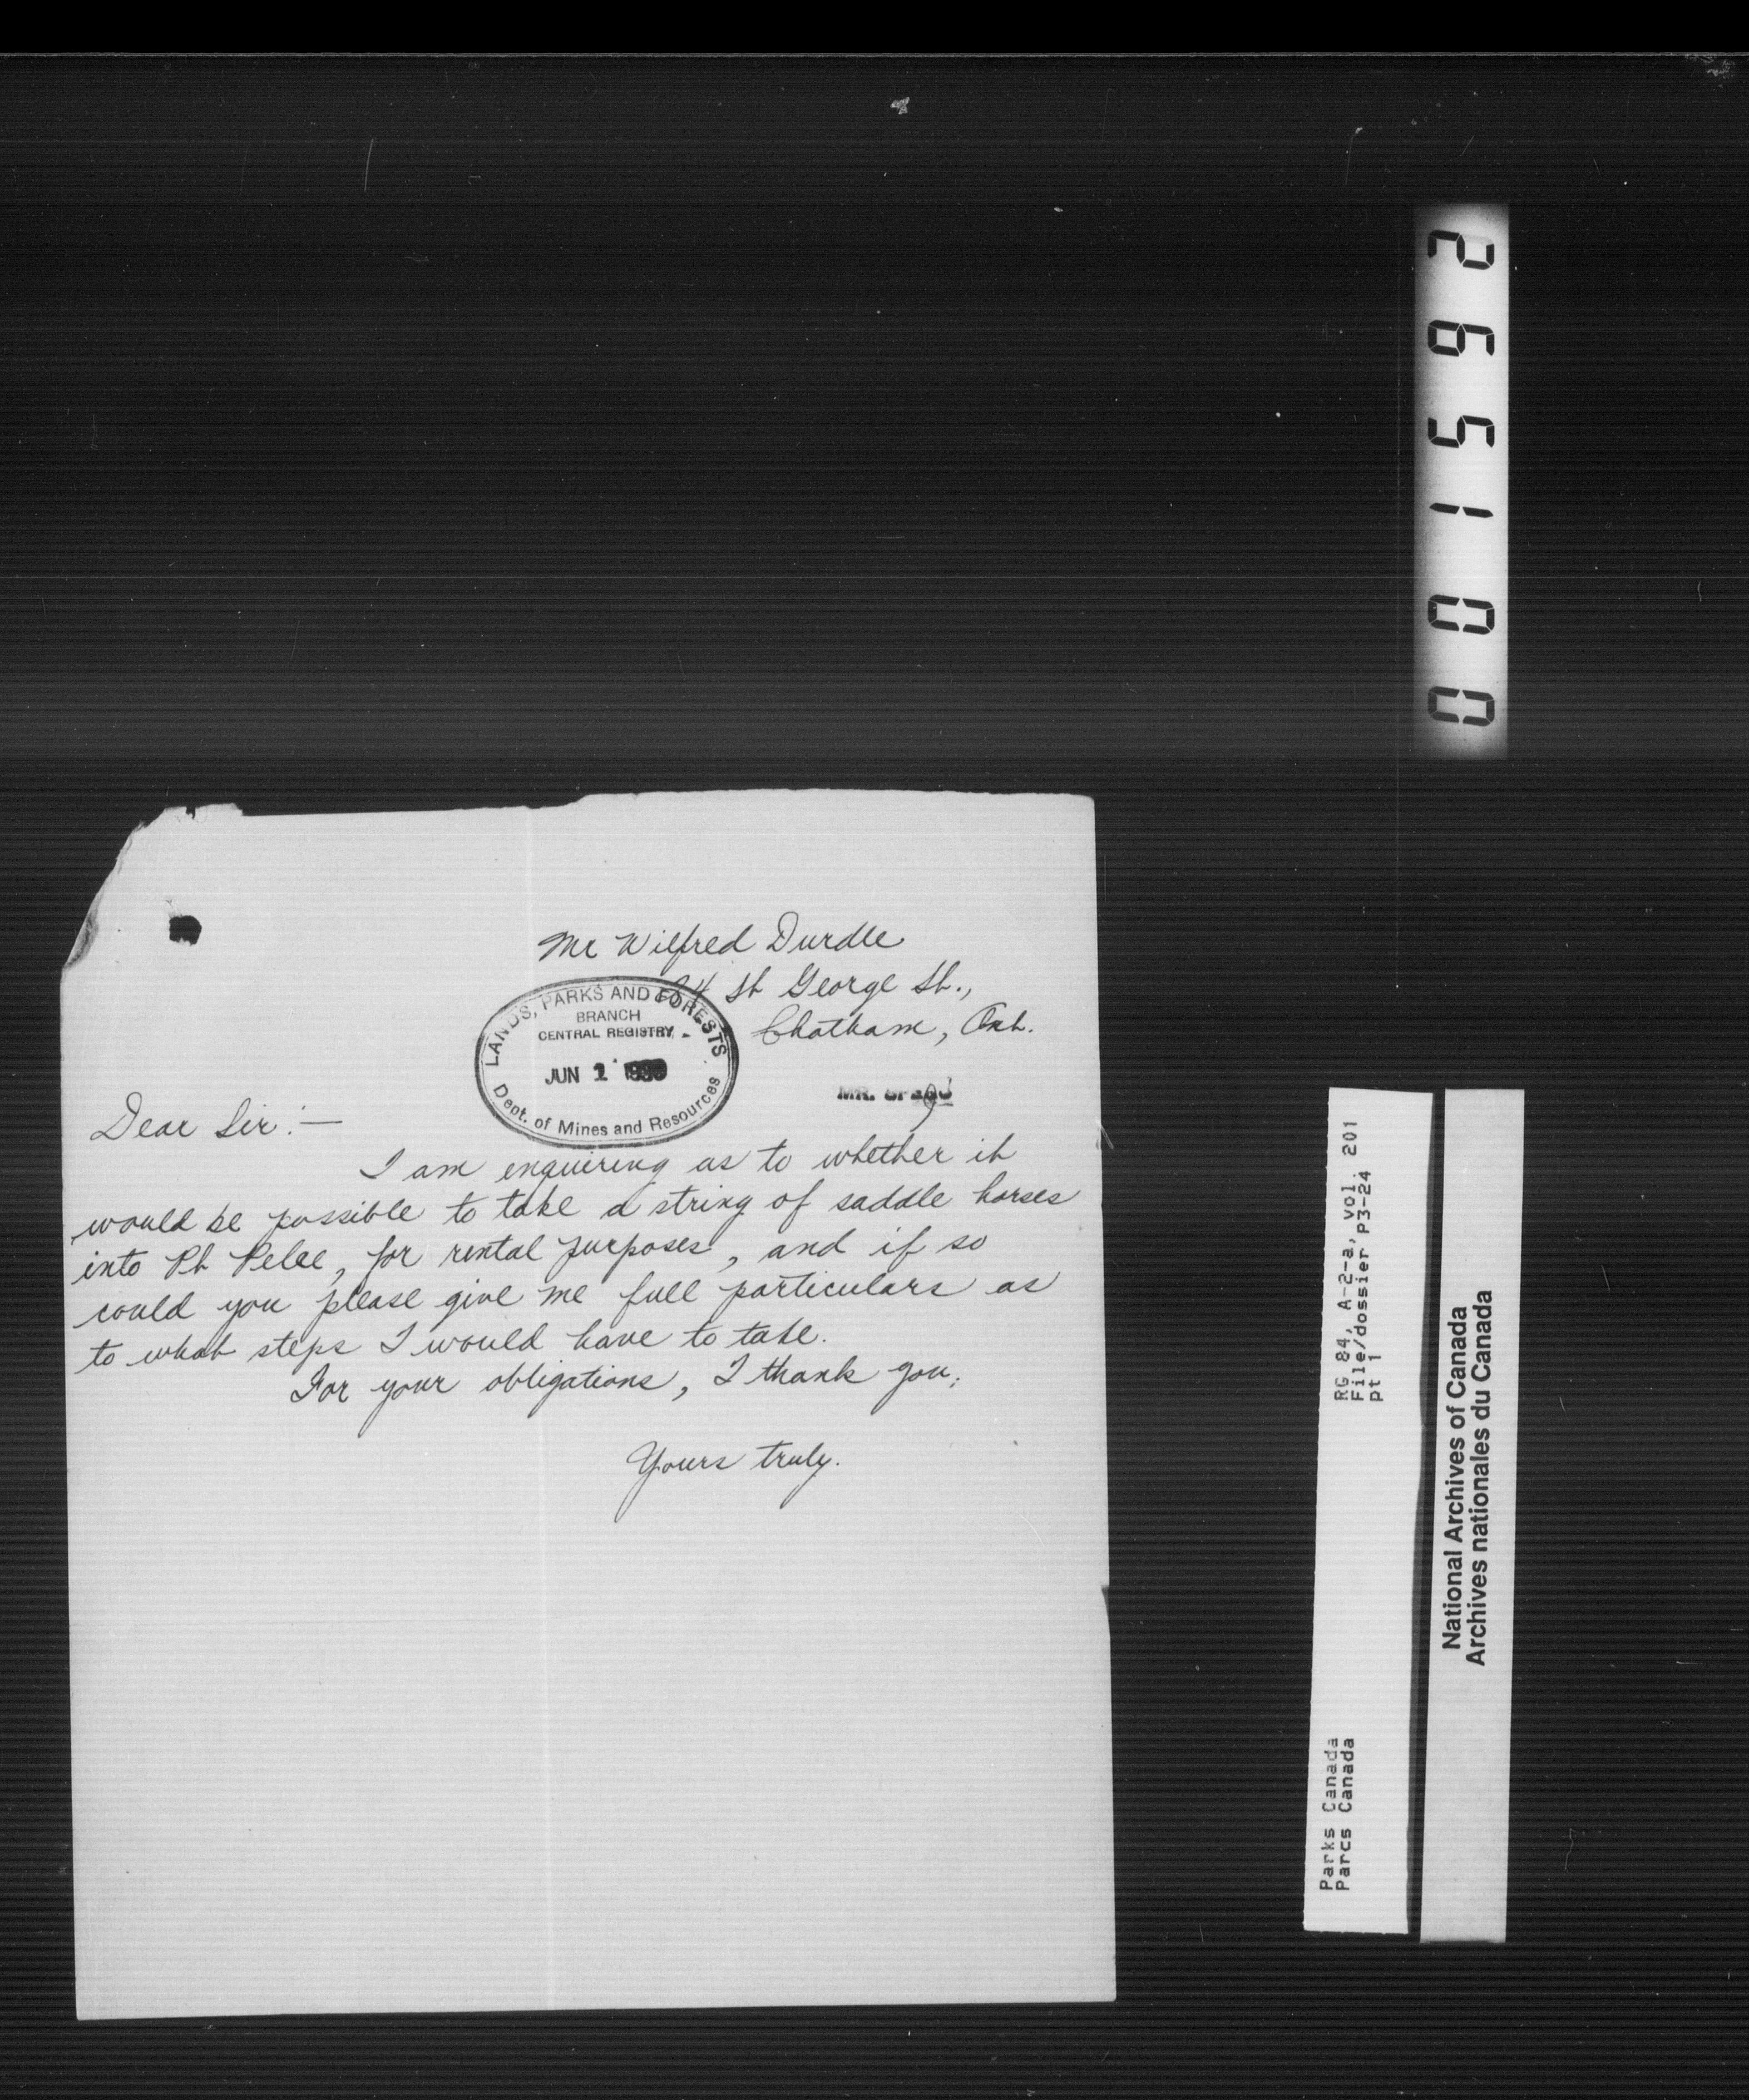 Mr Wilfred Durdle
24 St George St.,
Chatham, Ont.
LANDS, PARKS AND FORESTS
BRANCH
CENTRAL REGISTRY
JUN 1
Dept. of Mines and Resources
MR.
Dear Sir:—
I am enquiring as to whether it
would be possible to take a string of saddle horses
into Pt Pelee, for rental purposes, and if so
could you please give me full particulars as
to what steps I would have to take.
For your obligations, I thank you;
Yours truly.
001592
RG 84, A-2-a, vol. 201
File/dossier P3-24
pt 1
Parks Canada
Parcs Canada
National Archives of Canada
Archives nationales du Canada